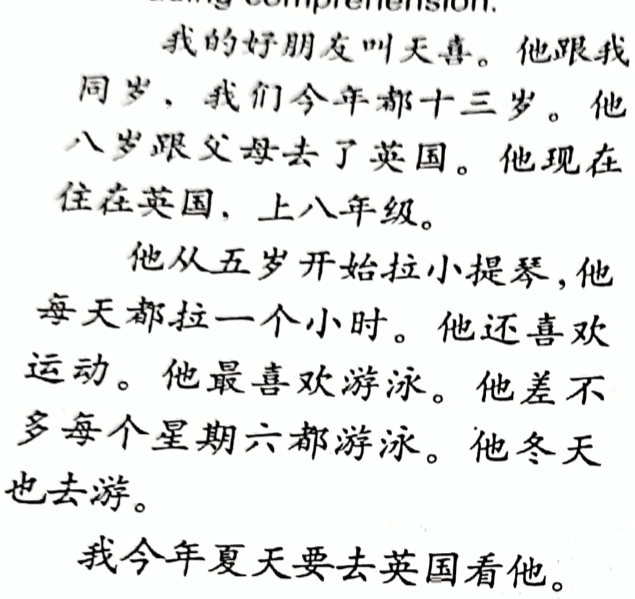 comprehension.
我的好朋友叫天喜。他跟我
同岁，我们今年都十三岁。他
八岁跟父母去了英国。他现在
住在英国，上八年级。
他从五岁开始拉小提琴，他
每天都拉一个小时。他还喜欢
运动。他最喜欢游泳。他差不
多每个星期六都游泳。他冬天
也去游。
我今年夏天要去英国看他。